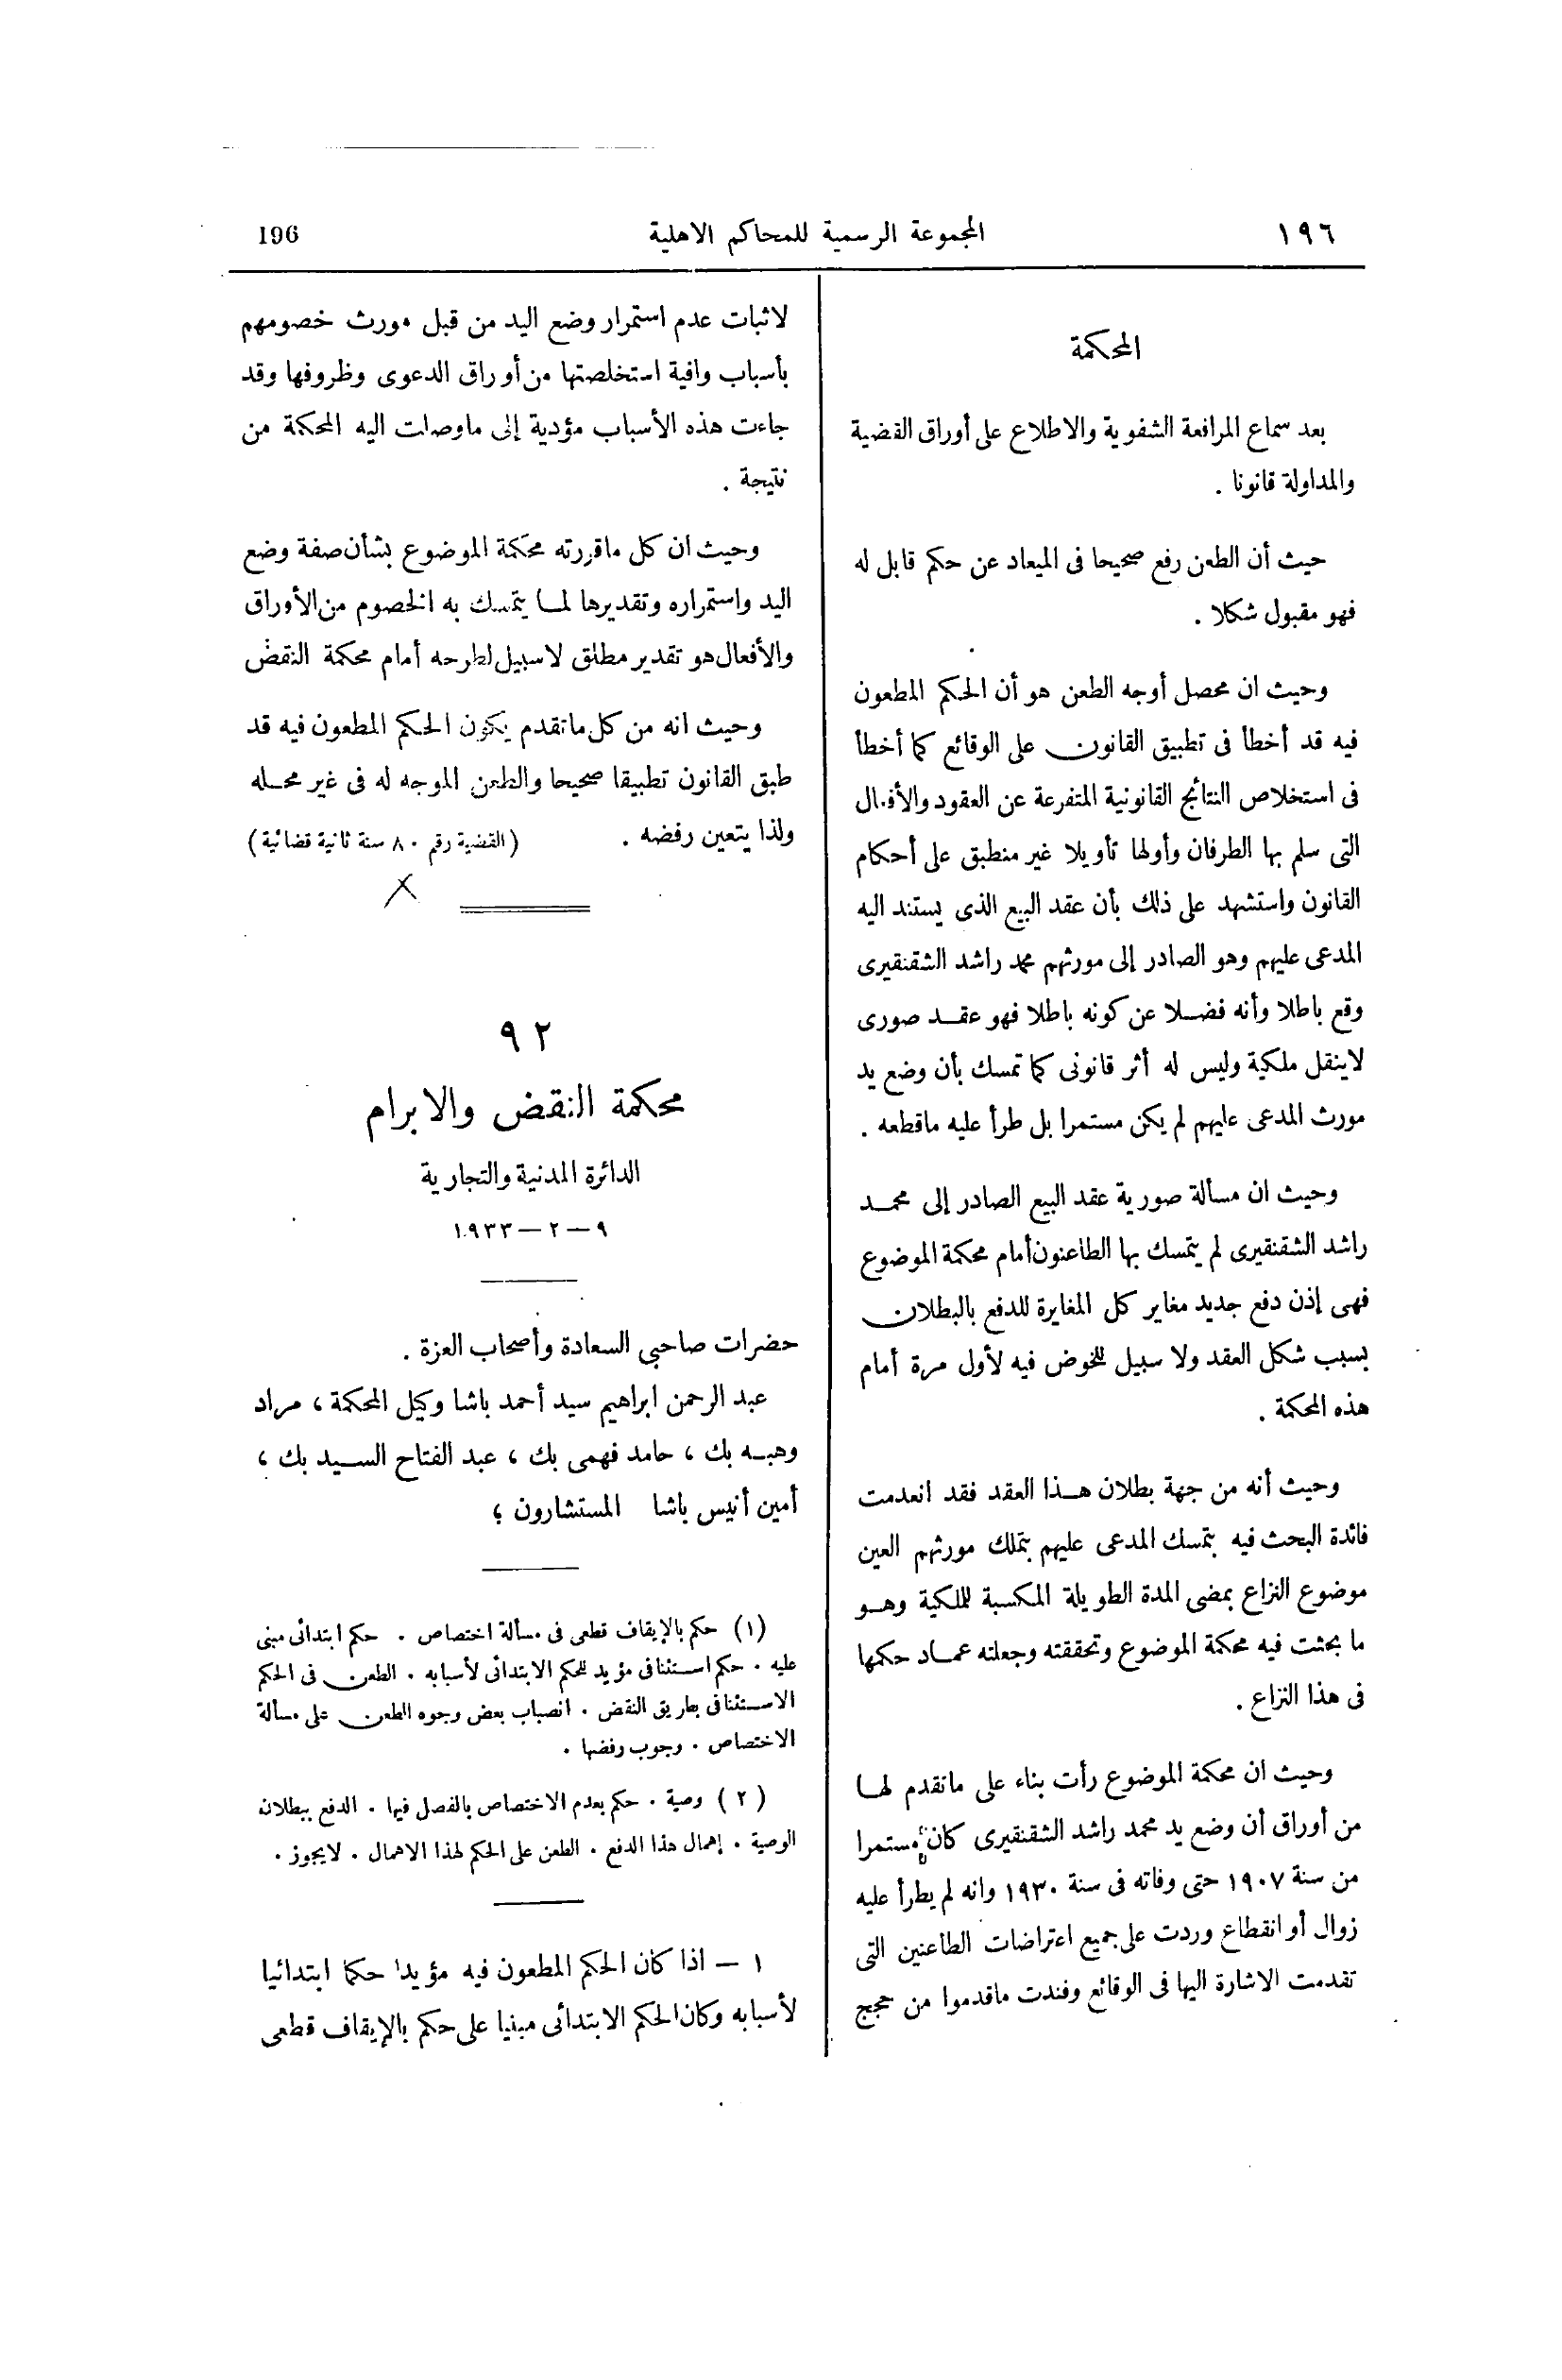 ١٩٦ المجموعة الرسمية للمحاكم الاهلية 196
المحكمة
بعد سماع المرافعة الشفوية والاطلاع على أوراق القضية
والمداولة قانونا .
حيث أن الطعن رفع صحيحا فى الميعاد عن حكم قابل له
فهو مقبول شكلا .
وحيث ان محصل أوجه الطعن هو أن الحكم المطعون
فيه قد أخطأ فى تطبيق القانون على الوقائع كما أخطأ
فى استخلاص النتائج القانونية المتفرعة عن العقود والأفعال
التى سلم بها الطرفان وأولها تأويلا غير منطبق على أحكام
القانون واستشهد على ذلك بأن عقد البيع الذى يستند اليه
المدعى عليهم وهو الصادر إلى مورثهم محمد راشد الشقنقيرى
وقع باطلا وأنه فضلا عن كونه باطلا فهو عقد صورى
لاينقل ملكية وليس له أثر قانونى كما تمسك بأن وضع يد
مورث المدعى عليهم لم يكن مستمرا بل طرأ عليه ماقطعه .
وحيث ان مسألة صورية عقد البيع الصادر إلى محمد
راشد الشقنقيرى لم يتمسك بها الطاعنون أمام محكمة الموضوع
فهى إذن دفع جديد مغاير كل المغايرة للدفع بالبطلان
بسبب شكل العقد ولا سبيل للخوض فيه لأول مرة أمام
هذه المحكمة .
وحيث أنه من جهة بطلان هذا العقد فقد انعدمت
فائدة البحث فيه بتمسك المدعى عليهم بتملك مورثهم العين
موضوع النزاع بمضى المدة الطويلة المكسبة للملكية وهو
ما بحثت فيه محكمة الموضوع وتحققته وجعلته عماد حكمها
فى هذا النزاع .
وحيث ان محكمة الموضوع رأت بناء على ماتقدم لها
من أوراق أن وضع يد محمد راشد الشقنقيرى كان مستمرا
من سنة ١٩٠٧ حتى وفاته فى سنة ١٩٣٠ وانه لم يطرأ عليه
زوال أو انقطاع وردت على جميع اعتراضات الطاعنين التى
تقدمت الاشارة اليها فى الوقائع وفندت ماقدموا من حجج
لاثبات عدم استمرار وضع اليد من قبل مورث خصومهم
بأسباب وافية استخلصتها من أوراق الدعوى وظروفها وقد
جاءت هذه الأسباب مؤدية إلى ماوصلت اليه المحكمة من
نتيجة .
وحيث ان كل ماقررته محكمة الموضوع بشأن صفة وضع
اليد واستمراره وتقديرها لما يتمسك به الخصوم من الأوراق
والأفعال هو تقدير مطلق لاسبيل لطرحه أمام محكمة النقض
وحيث انه من كل ماتقدم يكون الحكم المطعون فيه قد
طبق القانون تطبيقا صحيحا والطعن الموجه له فى غير محله
ولذا يتعين رفضه . (القضية رقم ٨٠ سنة ثانية قضائية)
٩٢
محكمة النقض والابرام
الدائرة المدنية والتجارية
٩ — ٢ — ١٩٣٣
حضرات صاحبى السعادة وأصحاب العزة .
عبد الرحمن ابراهيم سيد أحمد باشا وكيل المحكمة ، مراد
وهبه بك ، حامد فهمى بك ، عبد الفتاح السيد بك ،
أمين أنيس باشا المستشارون ؛
(١) حكم بالإيقاف قطعى فى مسألة اختصاص . حكم ابتدائى مبنى
عليه . حكم استئنافى مؤيد للحكم الابتدائى لأسبابه . الطعن فى الحكم
الاستئنافى بطريق النقض . انصباب بعض وجوه الطعن على مسألة
الاختصاص . وجوب رفضها .
(٢) وصية . حكم بعدم الاختصاص بالفصل فيها . الدفع ببطلان
الوصية . إهمال هذا الدفع . الطعن على الحكم لهذا الاهمال . لايجوز .
١ — اذا كان الحكم المطعون فيه مؤيدا حكما ابتدائيا
لأسبابه وكان الحكم الابتدائى مبنيا على حكم بالإيقاف قطعى